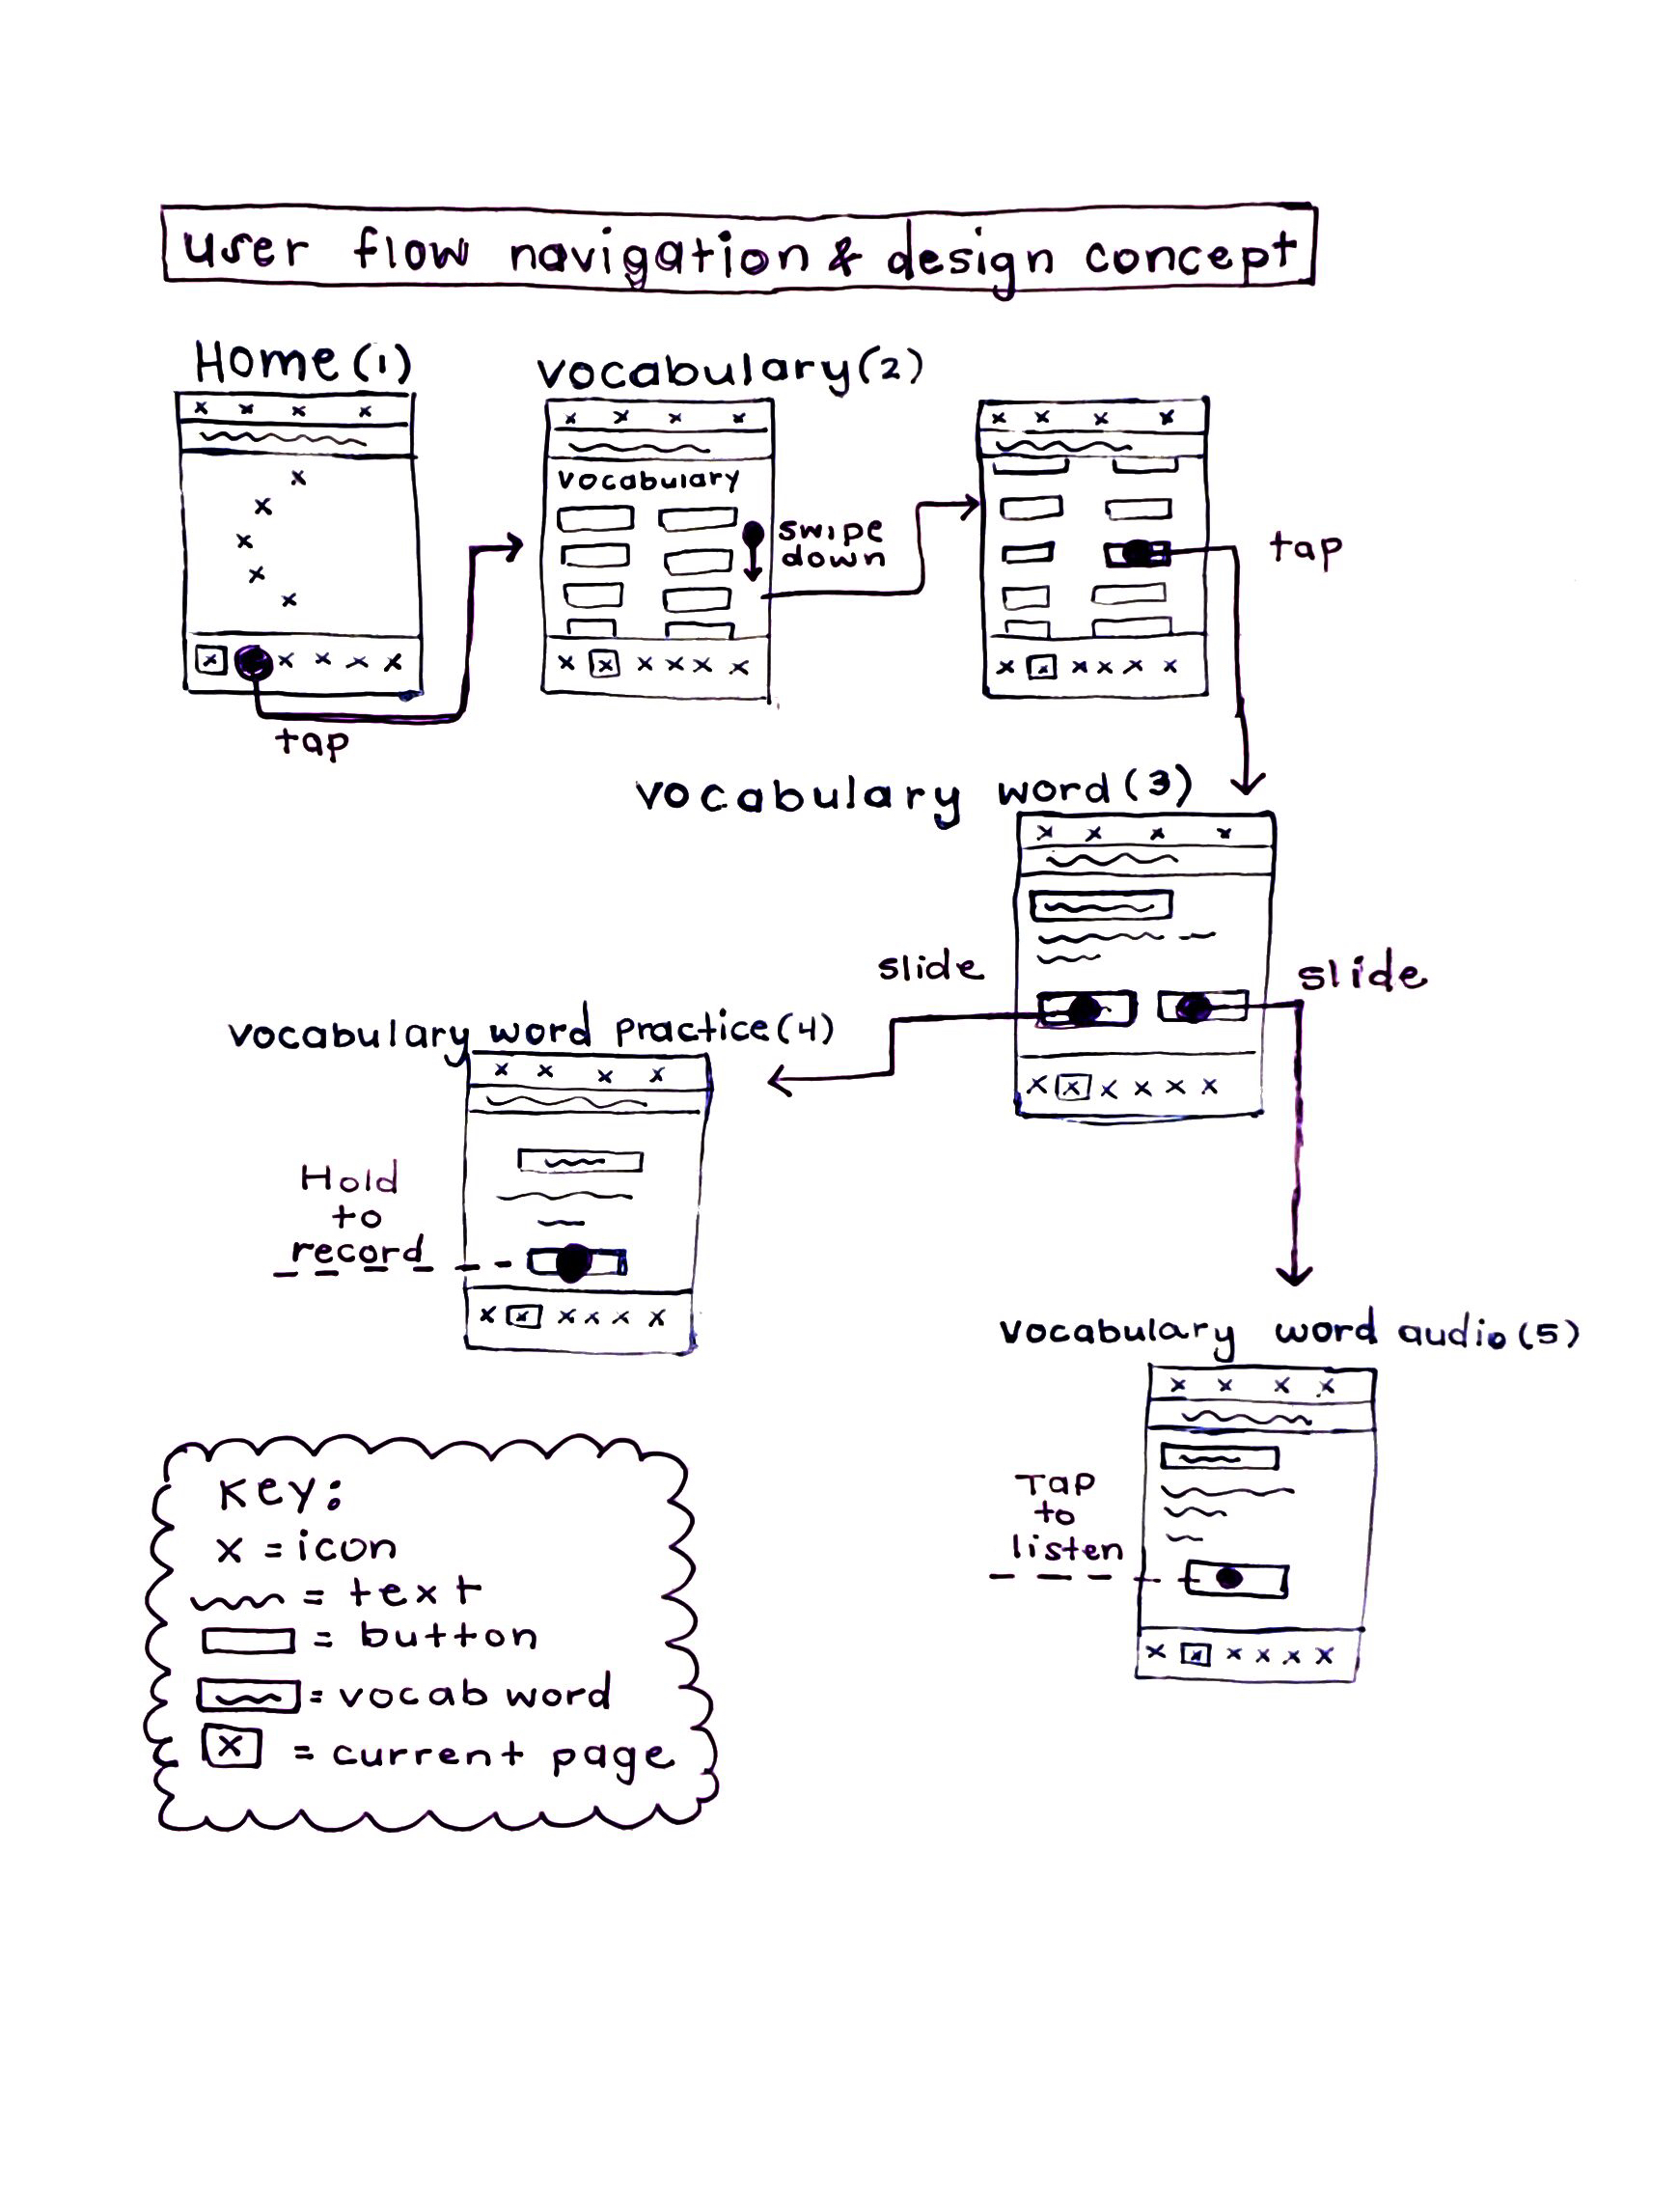 user flow navigation & design concept
Home (1)
vocabulary (2)
vocabulary
swipe
down
tap
tap
vocabulary word (3)
slide
slide
vocabulary word practice (4)
Hold
to
record
vocabulary word audio (5)
Tap
to
listen
Key:
x = icon
= text
= button
= vocab word
x = current page